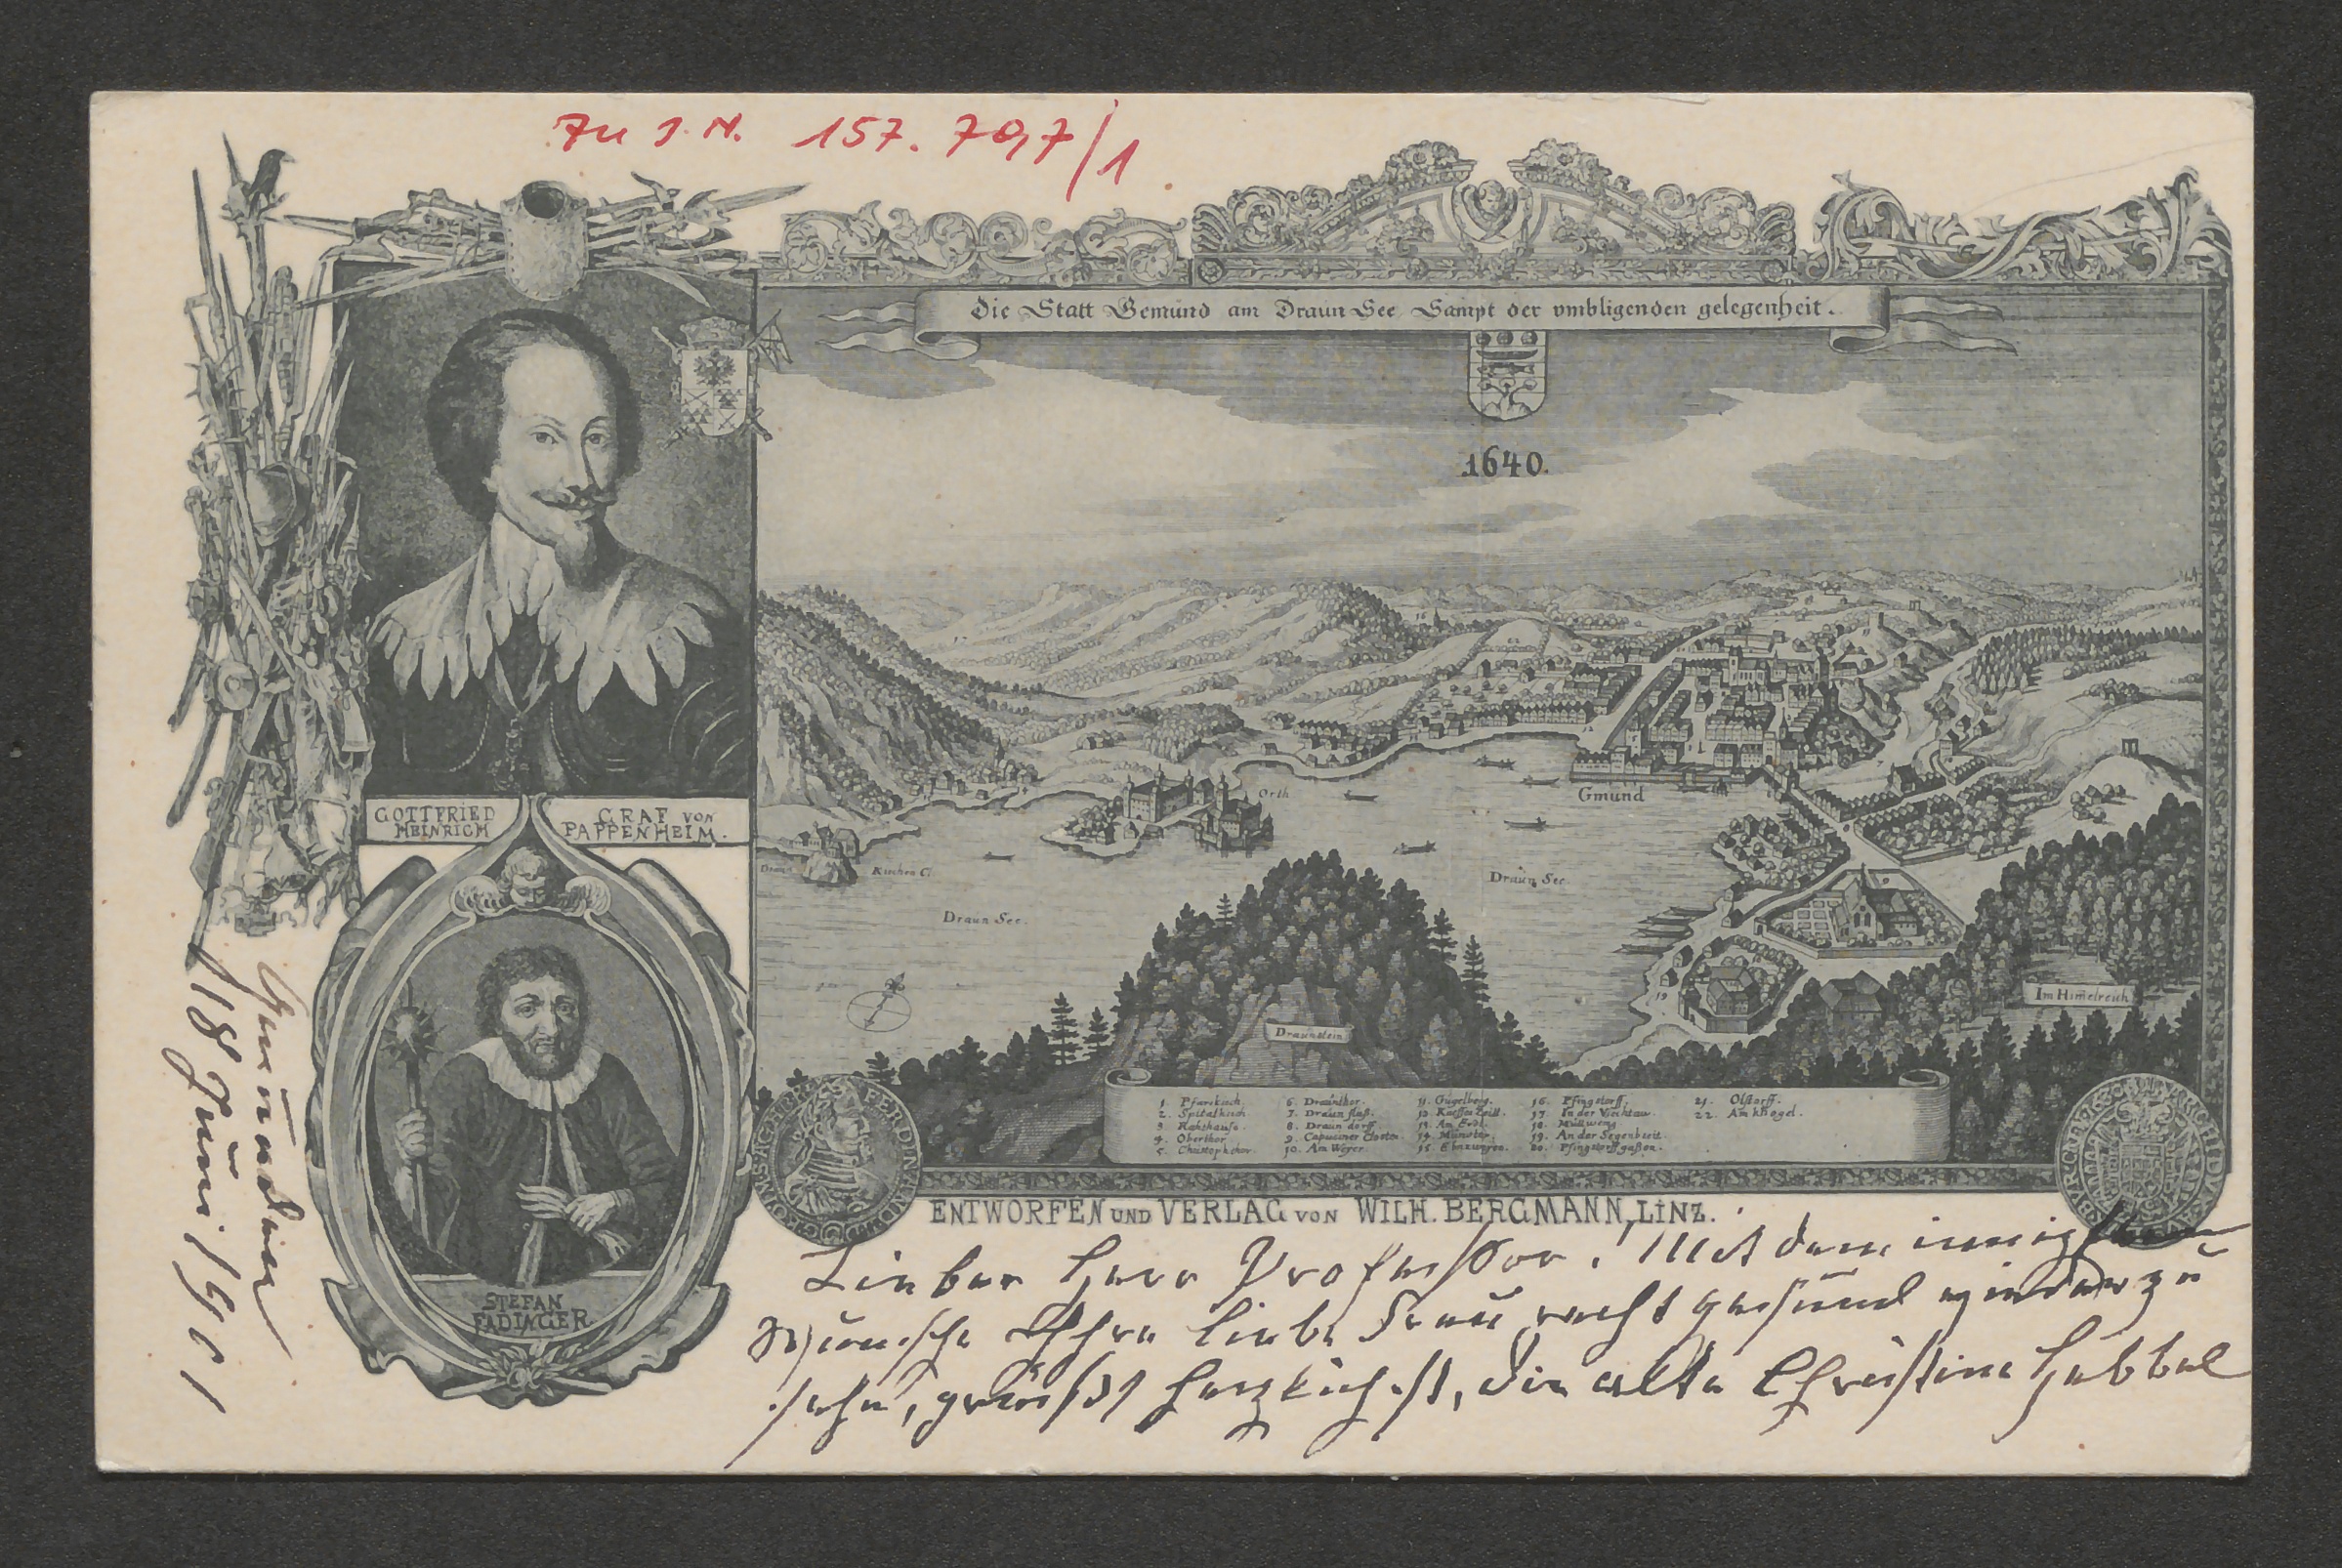 Zu I. N. 157.707/1
Die Statt Gemund am Draun See Sampt der vmbligenden gelegenheit.
1640.
GOTTFRIED HEINRICH GRAF VON PAPPENHEIM.
Orth
Gmund
Kirchen
Draun See
Draun See.
Draunstein
Im Himelreich
1. Pfarrkirch.
2. Spitalkirch
3. Rahthauss.
4. Oberthor
5. Christophthor
6. Draunthor.
7. Draun fluß.
8. Draun dorff
9. Capuciner Closter
10. Am Weyer
11. Gugelberg.
13. Am Erdt
14. Münster
15. Ebnzweyen.
16. Pfingstorff.
17. In der Viechtaw.
18. Müllweng
19. An der Segenbreit.
20. Pfingstorff gaßen.
21. Olstorff.
22. Am khogel.
STEFAN FADINGER
FERDINAND
ENTWORFEN UND VERLAG VON WILH. BERGMANN, LINZ.
Gmunden
18 Juni 1901
Lieber Herr Professor! Mit dem innigsten
Wunsche Ihre liebe Frau recht gesund wieder zu
sehn, grüsst herzlichst, die alte Christine Hebbel